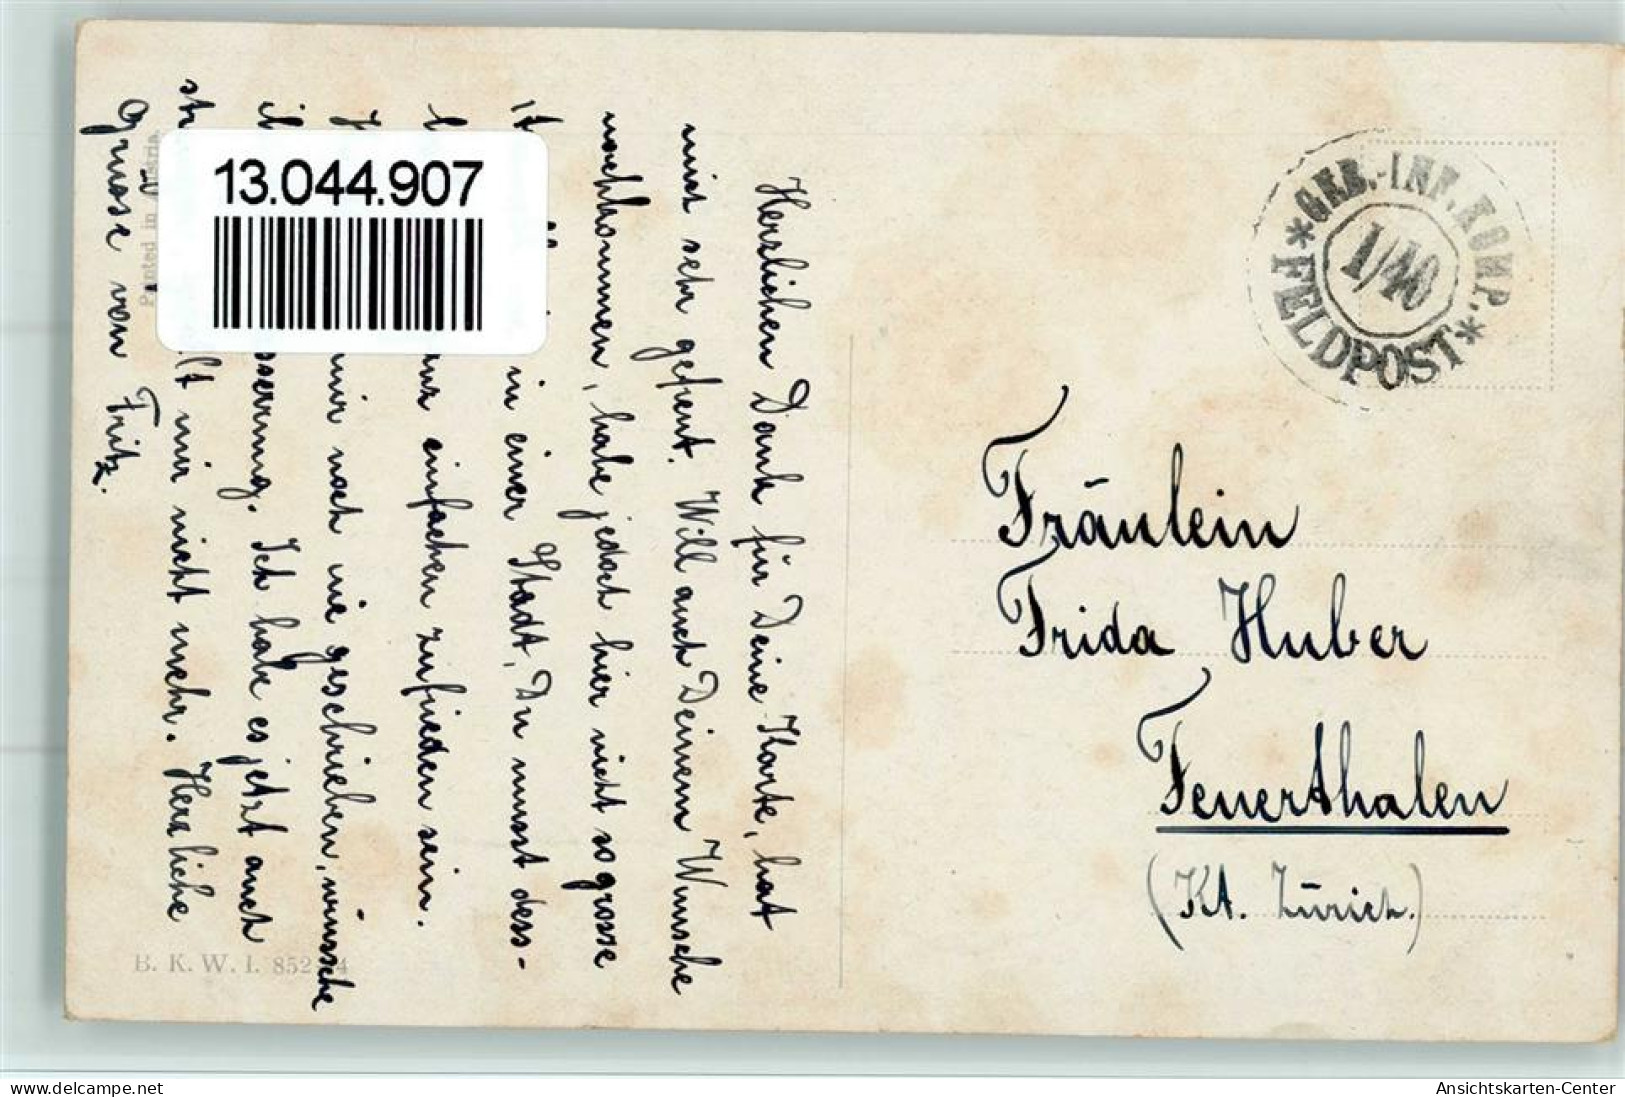 Herzlichen Dank für Deine Karte, hat
mich sehr gefreut. Will auch Deinem Wunsche
nachkommen, habe jedoch hier nicht so grosse
in einer Stadt, Du musst dess-
einfachen zufrieden sein.
mir noch nie geschrieben, wünsche
sserung. Ich habe es jetzt auch
mir nicht mehr. Herzliche
Grüsse von Fritz.
Printed in Austria
B. K. W. I. 852
13.044.907
*GEB.-INF. KOMP.*
I/40
FELDPOST
Fräulein
Frida Huber
Feuerthalen
(Kt. Zürich.)
Ansichtskarten-Center